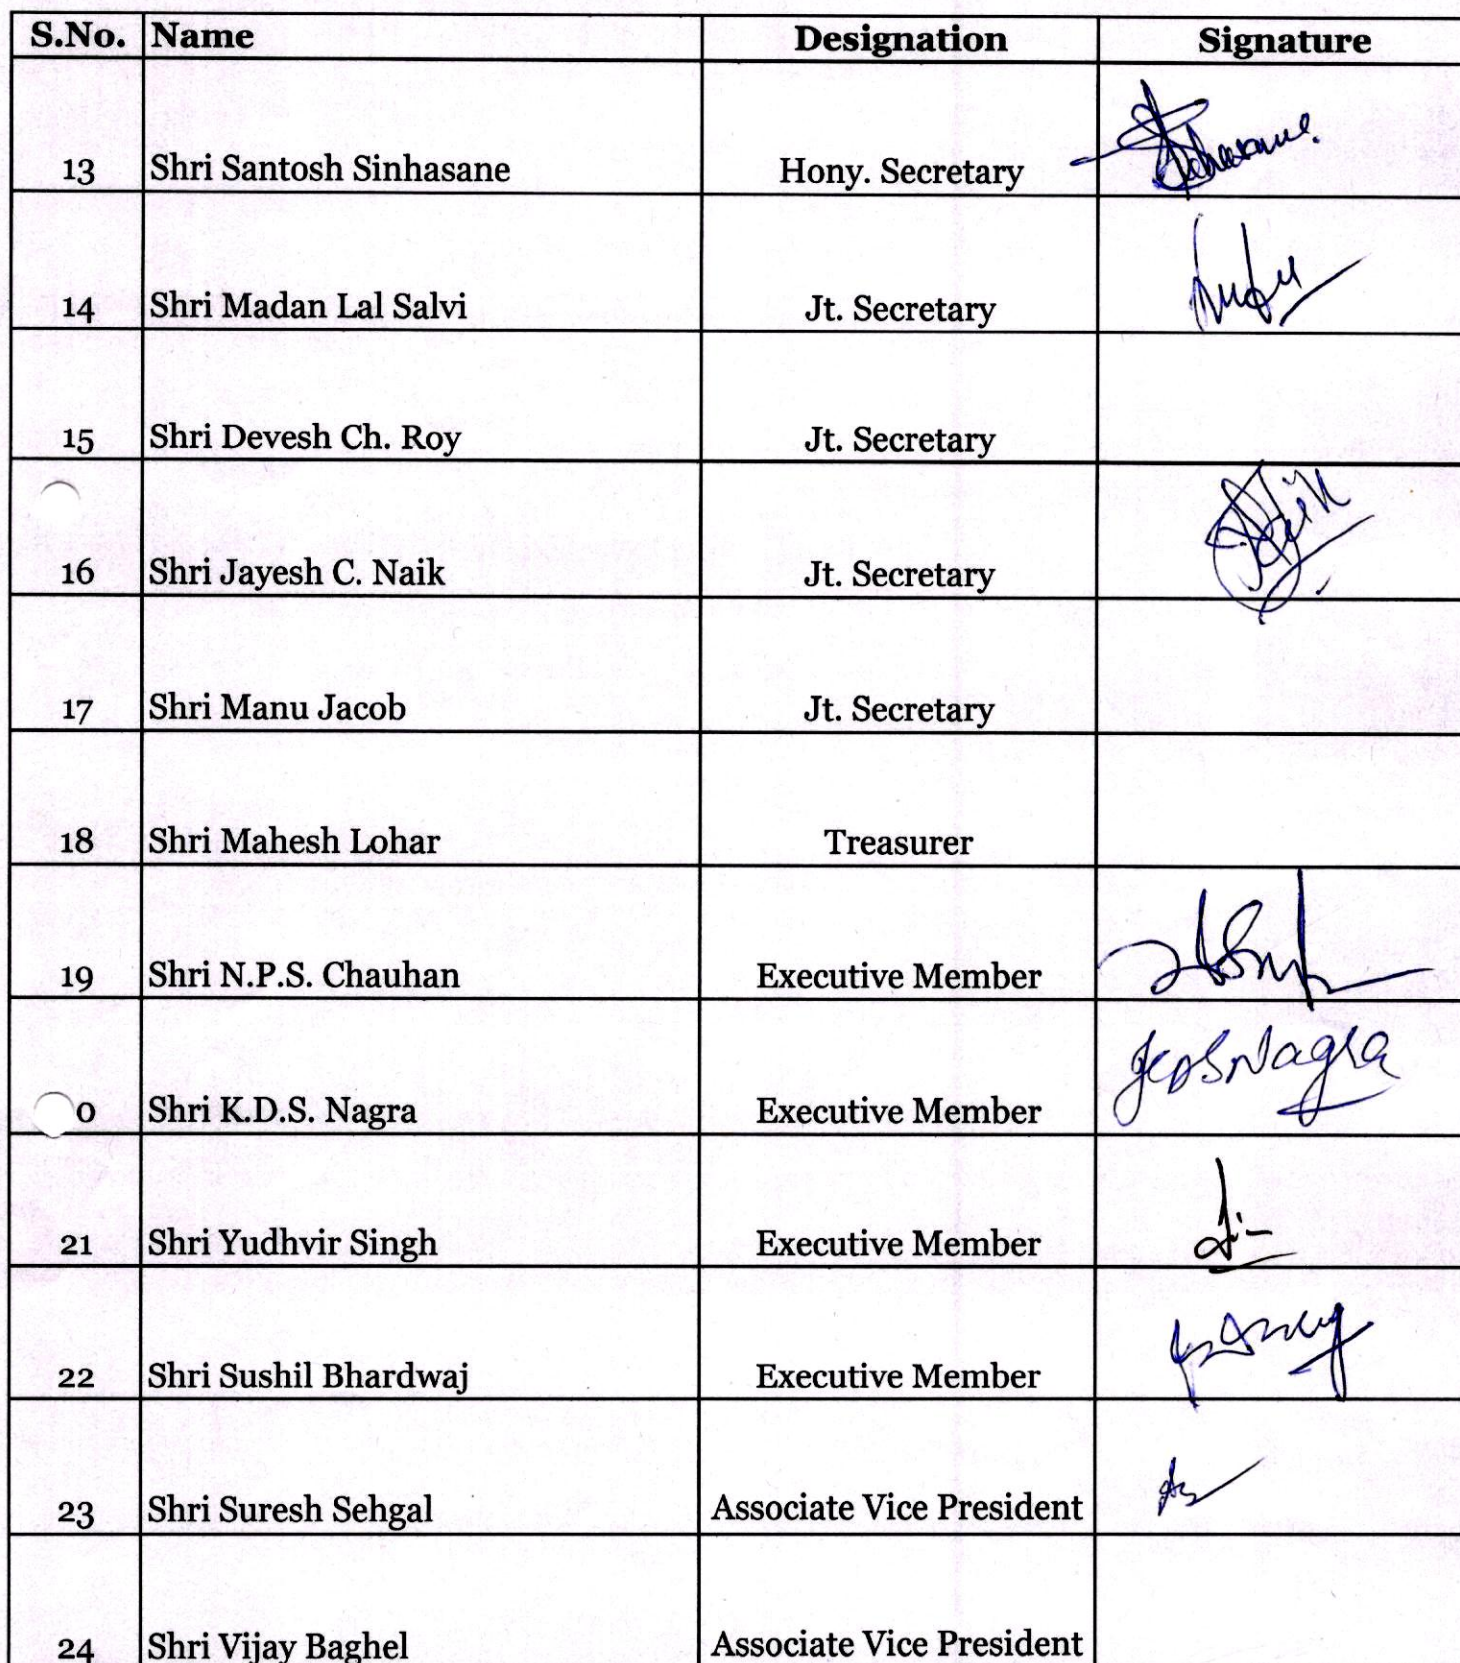 S.No. Name Designation Signature
13 Shri Santosh Sinhasane Hony. Secretary
14 Shri Madan Lal Salvi Jt. Secretary
15 Shri Devesh Ch. Roy Jt. Secretary
16 Shri Jayesh C. Naik Jt. Secretary
17 Shri Manu Jacob Jt. Secretary
18 Shri Mahesh Lohar Treasurer
19 Shri N.P.S. Chauhan Executive Member
0 Shri K.D.S. Nagra Executive Member KDSNagra
21 Shri Yudhvir Singh Executive Member
22 Shri Sushil Bhardwaj Executive Member
23 Shri Suresh Sehgal Associate Vice President
24 Shri Vijay Baghel Associate Vice President